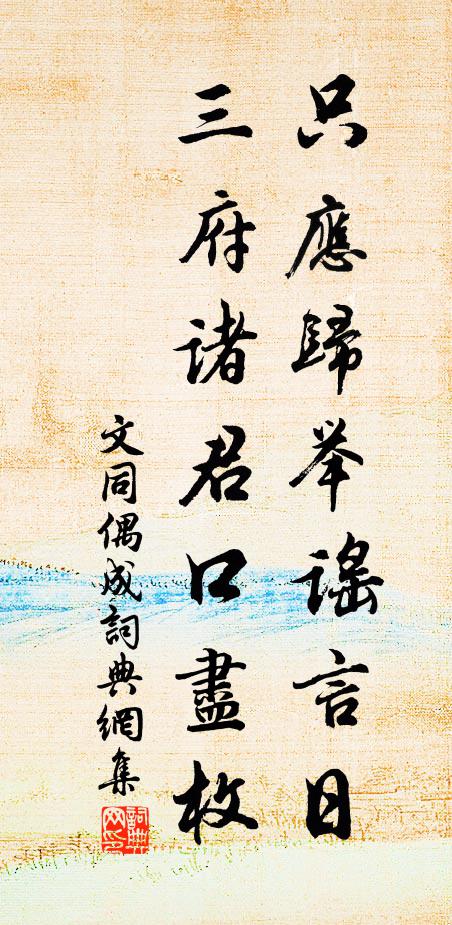 只應歸举謠言日
三府諸君口盡枚
文同偶成詞典網集
詞典
网印